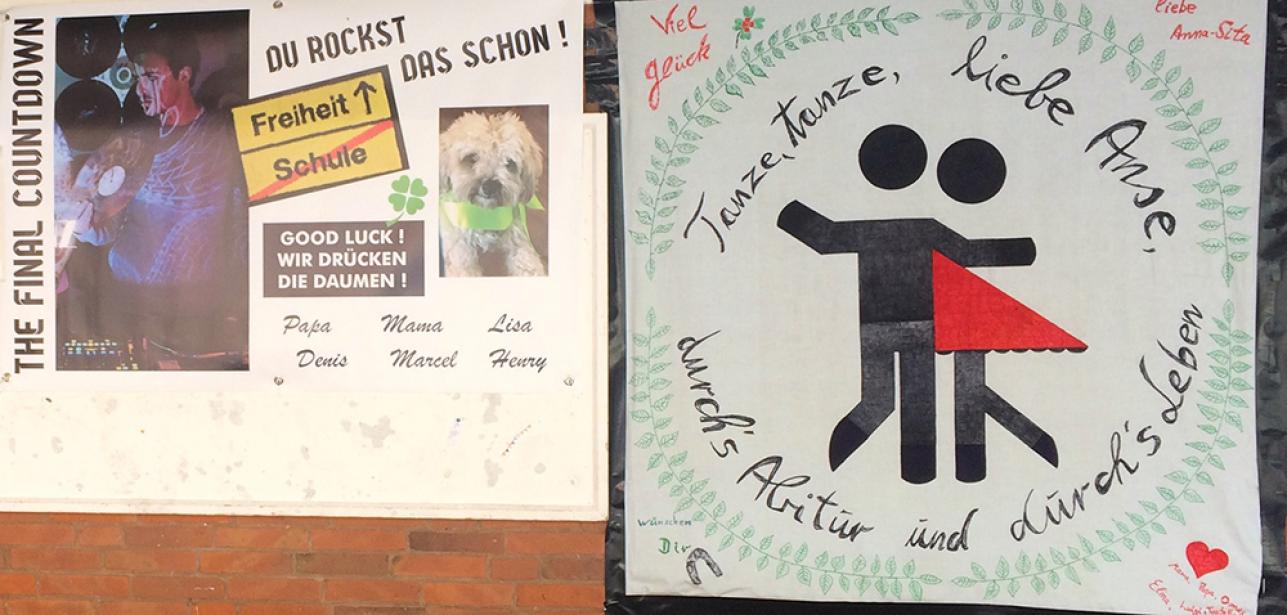 THE FINAL COUNTDOWN
DU ROCKST
DAS SCHON !
Freiheit ↑
Schule
GOOD LUCK !
WIR DRÜCKEN
DIE DAUMEN !
Papa Mama Lisa
Denis Marcel Henry
Viel
glück
liebe
Anna-Sita
Tanze, tanze, liebe Anse,
durch's Abitur und durch's Leben
Wünschen
Dir